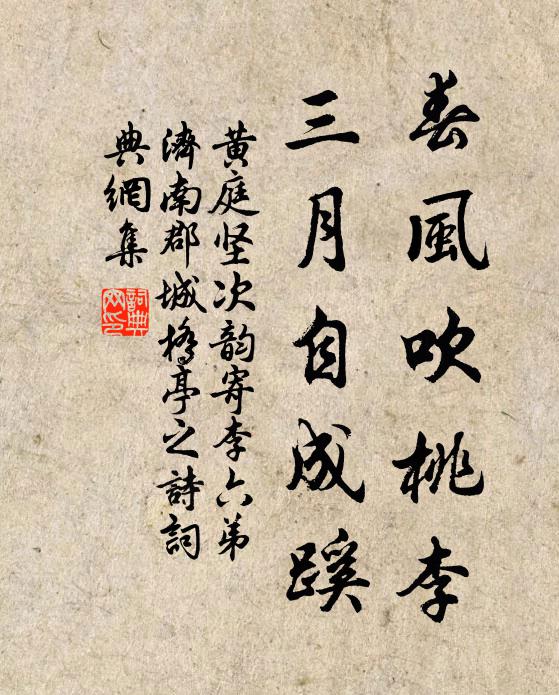 春風吹桃李
三月自成蹊
黄庭坚次韵寄李六弟
濟南郡城橋亭之詩詞
典網集
詞典網印